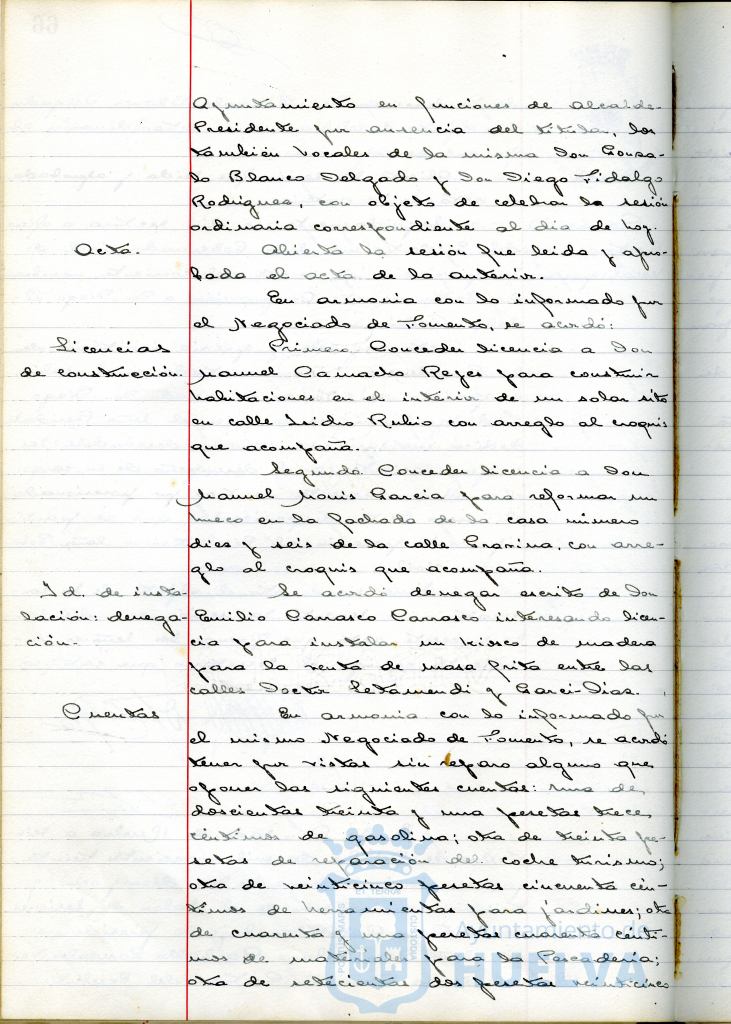 Ayuntamiento en funciones de Alcalde-
Presidente por ausencia del titular, los
también Vocales de la misma Don Gonza-
lo Blanco Delgado y Don Diego Fidalgo
Rodriguez, con objeto de celebrar la sesión
ordinaria correspondiente al dia de hoy.
Acta. Abierta la sesión fue leida y apro-
bada el acta de la anterior.
En armonia con lo informado por
el Negociado de Fomento, se acordó:
Licencias Primero. Conceder licencia a Don
de construcción. Manuel Camacho Reyes para construir
habitaciones en el interior de un solar sito
en calle Isidro Rubio con arreglo al croquis
que acompaña.
Segundo. Conceder licencia a Don
Manuel Garcia para reformar un
hueco en la fachada de la casa número
diez y seis de la calle Gravina, con arre-
glo al croquis que acompaña.
Id. de insta- Se acordó denegar escrito de Don
lación: denega- Emilio Carrasco Carrasco interesando licen-
ción.- cia para instalar un kiosco de madera
para la venta de masa frita entre las
calles Doctor Letamendi y Garci-Diaz.
Cuentas En armonia con lo informado por
el mismo Negociado de Fomento, se acordó
tener por vistas sin reparo alguno que
oponer las siguientes cuentas: una de
doscientas treinta y una pesetas trece
céntimos de gasolina; otra de treinta pe-
setas de reparación del coche turismo;
otra de veinticinco pesetas cincuenta cén-
timos de herramientas para jardines; otra
de cuarenta y una pesetas cuarenta cénti-
mos de materiales para la Pescaderia;
otra de setecientas dos pesetas veinticinco
Ayuntamiento de
HUELVA